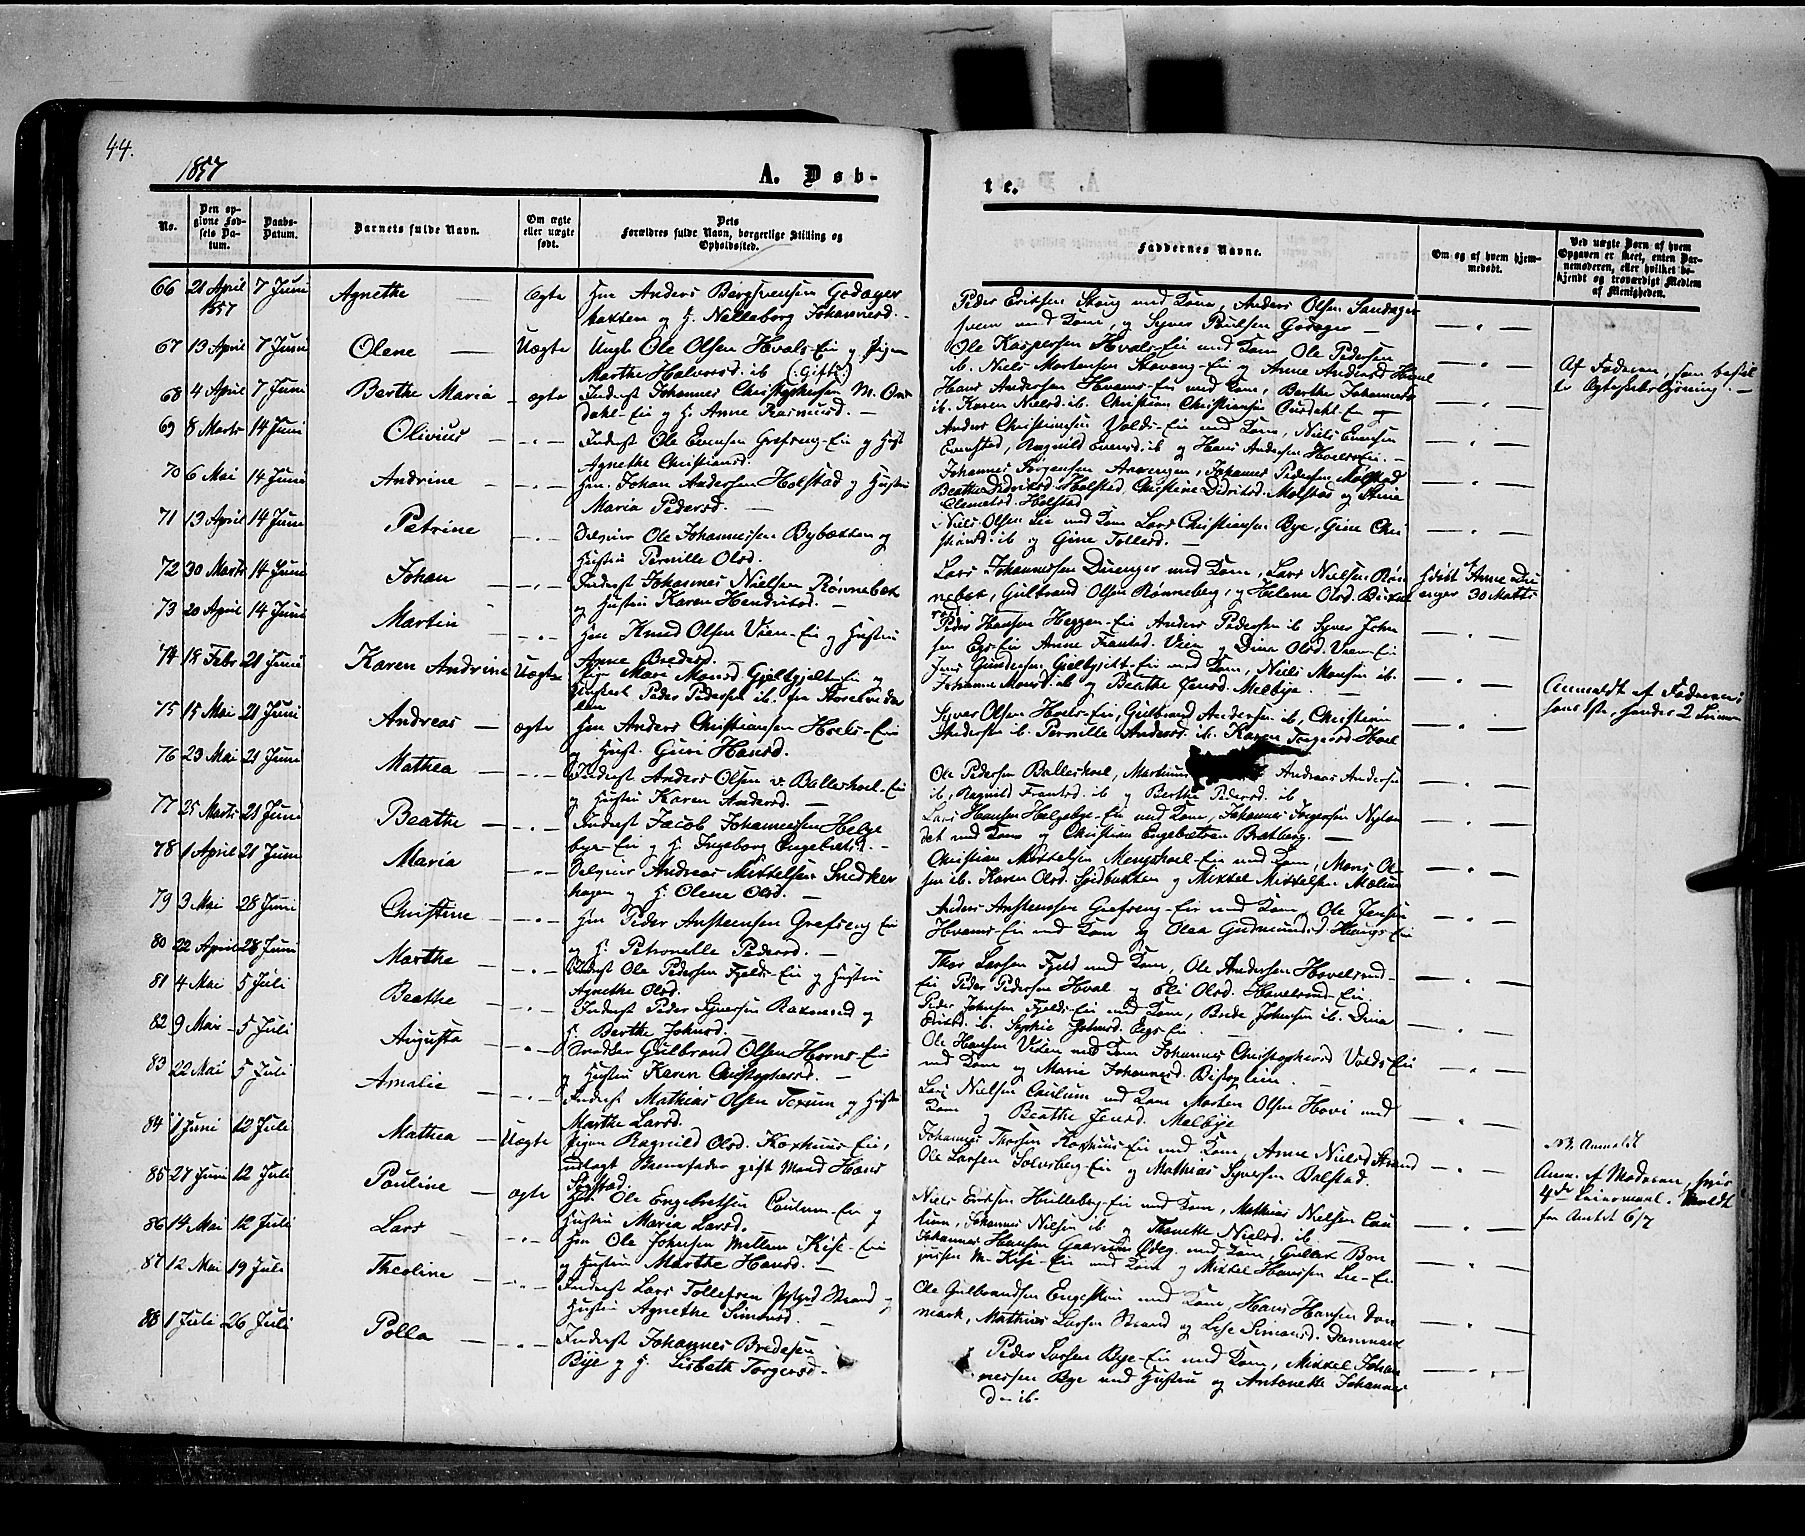 44.
1857
A. Døb-
te.
No.
Den opgivne Fødsels Datum.
Daabs-Datum.
Barnets fulde Navn.
Om ægte eller uægte født.
Forældres fulde Navn, borgerlige Stilling og Opholdssted.
Faddernes Navne.
Om og af hvem hjemmedøbt.
Ved uægte Børn af hvem Opgaven er skeet, enten Barnemoderen, eller hvilket bekjendt og troværdigt Medlem af Menigheden.
66 21 April 1857 7 Juni Agnethe — Ægte
Anders Bergsvensen Godager
og H. Nilleborg Johannesd. —
Peder Eriksen Skoug med Kone, Anders Olsen
med Kone, og Syver Poulsen Godager —
67 13 April 7 Juni Olene — Uægte Ungk Ole Olsen Hvals-Ei og Pigen
Marthe Halvorsd. ib (: Gift :)
Ole Kaspersen Hvals-Ei med Kone Ole Pedersen
ib. Niels Mortensen Stavang-Ei og Anne Andersd Hval
Af Faderen, som
68 4 April 7 Juni Berthe Maria — ægte Inderst Johannes Christophersen M. Ous
dahl-Ei og H. Anne Rasmusd. —
Hans Andersen Hvams-Ei med Kone, Berthe Johannesd
ib. Karen Nielsd. ib. Christian Christiansen Ousdahl-Ei og
69 8 Marts 14 Juni Olivius — " — Inderst Ole Evensen Grefseng-Ei og Hust
Agnethe Christiansd.
Anders Christiansen Volds-Ei med Kone, Niels Evensen
Evenstad, Ragnild Evensd. ib og Hans Andersen Hoels-Ei. —
70 6 Mai 14 Juni Andrine — " — Johan Andersen Holstad og Hustru
Maria Pedersd. —
Johannes Jörgensen Aavengen, Johannes Pedersen Molstad
Beathe Didriksd. Holstad, Christine Didriksd. Molstad og Stina
Clemetsd. Holstad
71 13 April 14 Juni Petrine — " — Selveier Ole Johannessen Bybætten og
Hustru Pernille Olsd.
Niels Olsen Lie med Kone Lars Christiansen Bye, Gine Chri
stiansd. ib og Gine Tollersd. —
72 30 Marts 14 Juni Johan — " — Inderst Johannes Nielsen Rønnebek
og Hustru Karen Hendriksd. —
Lars Johannessen Duenger med Kone, Lars Nielsen Røn
nebek, Gulbrand Olsen Rønneberg, og Helene Olsd.
hdöbt af Anne Du
enger 30 Marts
73 20 April 14 Juni Martin — " — Knud Olsen Vien-Ei og Hustru
Anne Bredesd.
Peder Hansen Heggen-Ei Anders Pedersen ib Syver John
sen Egs-Ei Anne Frantsd. Vien og Dina Olsd. Vien-Ei
74 18 Febr 21 Juni Karen Andrine Uægte Pige Mari Monsd. Gjelbgjelt-Ei og
Ungkarl Peder Pedersen ib. fra
Jens Gundersen Gjelbgjelt-Ei med Kone, Niels Monsen ib.
Johanne Monsd. ib og Beathe Jensd. Melbye. —
Anmeldt af Faderen,
75 15 Mai 21 Juni Andreas — ægte Anders Christiansen Hoels-Ei
og Hust. Guri Hansd.
Syver Olsen Hoels-Ei, Gulbrand Andersen ib, Christian
Andersen ib. Pernille Andersd. ib. Karen Torgersd. Hoel
76 23 Mai 21 Juni Mathea — " — Inderst Anders Olsen v. Balleshoel-Ei
og Hustru Karen Andersd. —
Ole Pedersen Balleshoel, Martinus Andreas Andersen
ib, Ragnild Frantsd. ib og Berthe Pedersd. ib
77 25 Marts 21 Juni Beathe — " — Inderst Jacob Johannessen Helge
bye-Ei og H. Ingeborg Engebretsd. —
Lars Hansen Helgebye-Ei med Kone, Johannes Jörgensen Nylan
det med Kone og Christian Engebretsen Bratberg. —
78 1 April 21 Juni Maria — " — Selveier Andreas Mikkelsen Snedker
hagen og H. Olene Olsd. —
Christian Mikkelsen Mengshoel-Ei med Kone, Moris Ol
sen ib. Karen Olsd. og Mikkel Mikkelsen
79 3 Mai 28 Juni Christine — " — Peder Anstensen Grefseng Ei
og H. Petronelle Pedersd. —
Anders Anstensen Grefseng-Ei med Kone, Ole Jensen
Hvams-Ei med Kone og Olea Gudmundsd. Haugs-Ei
80 22 April 28 Juni Marthe — " — Inderst Ole Pedersen Fjelds-Ei og Hustru
Agnethe Olsd.
Thor Larsen Fjeld med Kone, Ole Andersen Hovelsrud-
Ei Peder Pedersen Hval og Eli Olsd. Hovelsrud-Ei.
81 4 Mai 5 Juli Beathe — " — Inderst Peder Syversen og
H. Berthe Johnsd. —
Peder Johnsen Fjelds-Ei med Kone, Brede Johnsen ib. Dina
Eriksd. ib. Sophie Egs-Ei
82 9 Mai 5 Juli Augusta — " — Snedker Gulbrand Olsen Horns-Ei
og Hustru Karen Christophersd. —
Ole Hansen Vidin med Kone Johannes Christophersd Volds-Ei
med Kone og Marie Johannesd. Bispelien. —
83 22 Mai 5 Juli Amalie — " — Inderst Mathias Olsen Toxum og Hustru
Marthe Larsd.
Lars Nielsen Caulum med Kone Morten Olsen Hovi med
Kone og Beathe Jensd. Melbye
84 1 Juni 12 Juli Mathea — Uægte Pigen Ragnild Olsd. Korshuus-Ei,
udlagt Barnefader gift Mand Hans
Johannes Thorsen Korshuus-Ei med Kone, Anne Nielsd Strand
Ole Larsen Solvsberg-Ei og Mathias Syversen Balstad.
NB Anmeldt
Anm. af Moderen,
4de Leiermaal. Anmeldt
for Amtet 6/7
85 27 Juni 12 Juli Pauline — ægte Ole Engebretsen Caulum-Ei og
Hustru Maria Larsd.
Niels Eriksen Hulleberg-Ei med Kone, Mathias Nielsen Cau
lum, Johannes Nielsen ib og Thonette Nielsd. ib. —
86 14 Mai 12 Juli Lars — " — Ole Johnsen Mellem Kise-Ei
og Hustru Marthe Hansd. —
Johannes Hansen Gaarum Ødeg. med Kone, Gullik Bon
jursen M. Kise-Ei med Kone og Mikkel Hansen Lie-Ei
87 12 Mai 19 Juli Theoline — " — Inderst Lars Tollefsen Strand og
Hustru Agnethe Simensd. —
Ole Gulbrandsen Engestuen med Kone, Hans Hansen Dan
mark, Mathias Larsen Strand og Lise Simensd. Danmark
88 1 Juli 26 Juli Polla — " — Inderst Johannes Bredesen
Bye og H. Lisbeth Torgersd. —
Peder Larsen Bye-Ei med Kone, Mikkel Johan
nessen Bye med Hustru og Antonette Johannes
d — ib —